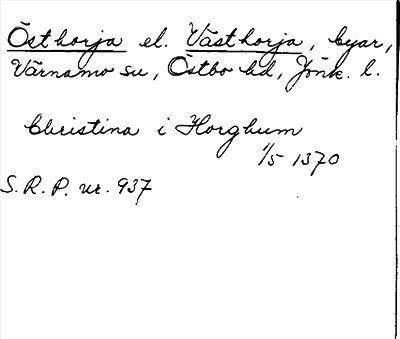 Östhorja el. Västhorja, byar,
Värnamo su, Östbo hd, Jönk. l.
Christina i Horghum
1/5 1370
S.R.P. nr. 937